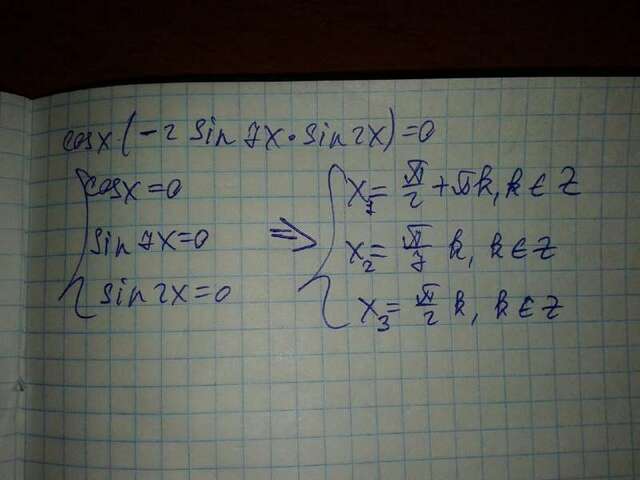 cosx(-2 sin7x·sin2x)=0
cosx=0
sin7x=0
sin2x=0
⇒
x₁=π/2+πk, k∈Z
x₂=π/7 k, k∈Z
x₃=π/2 k, k∈Z